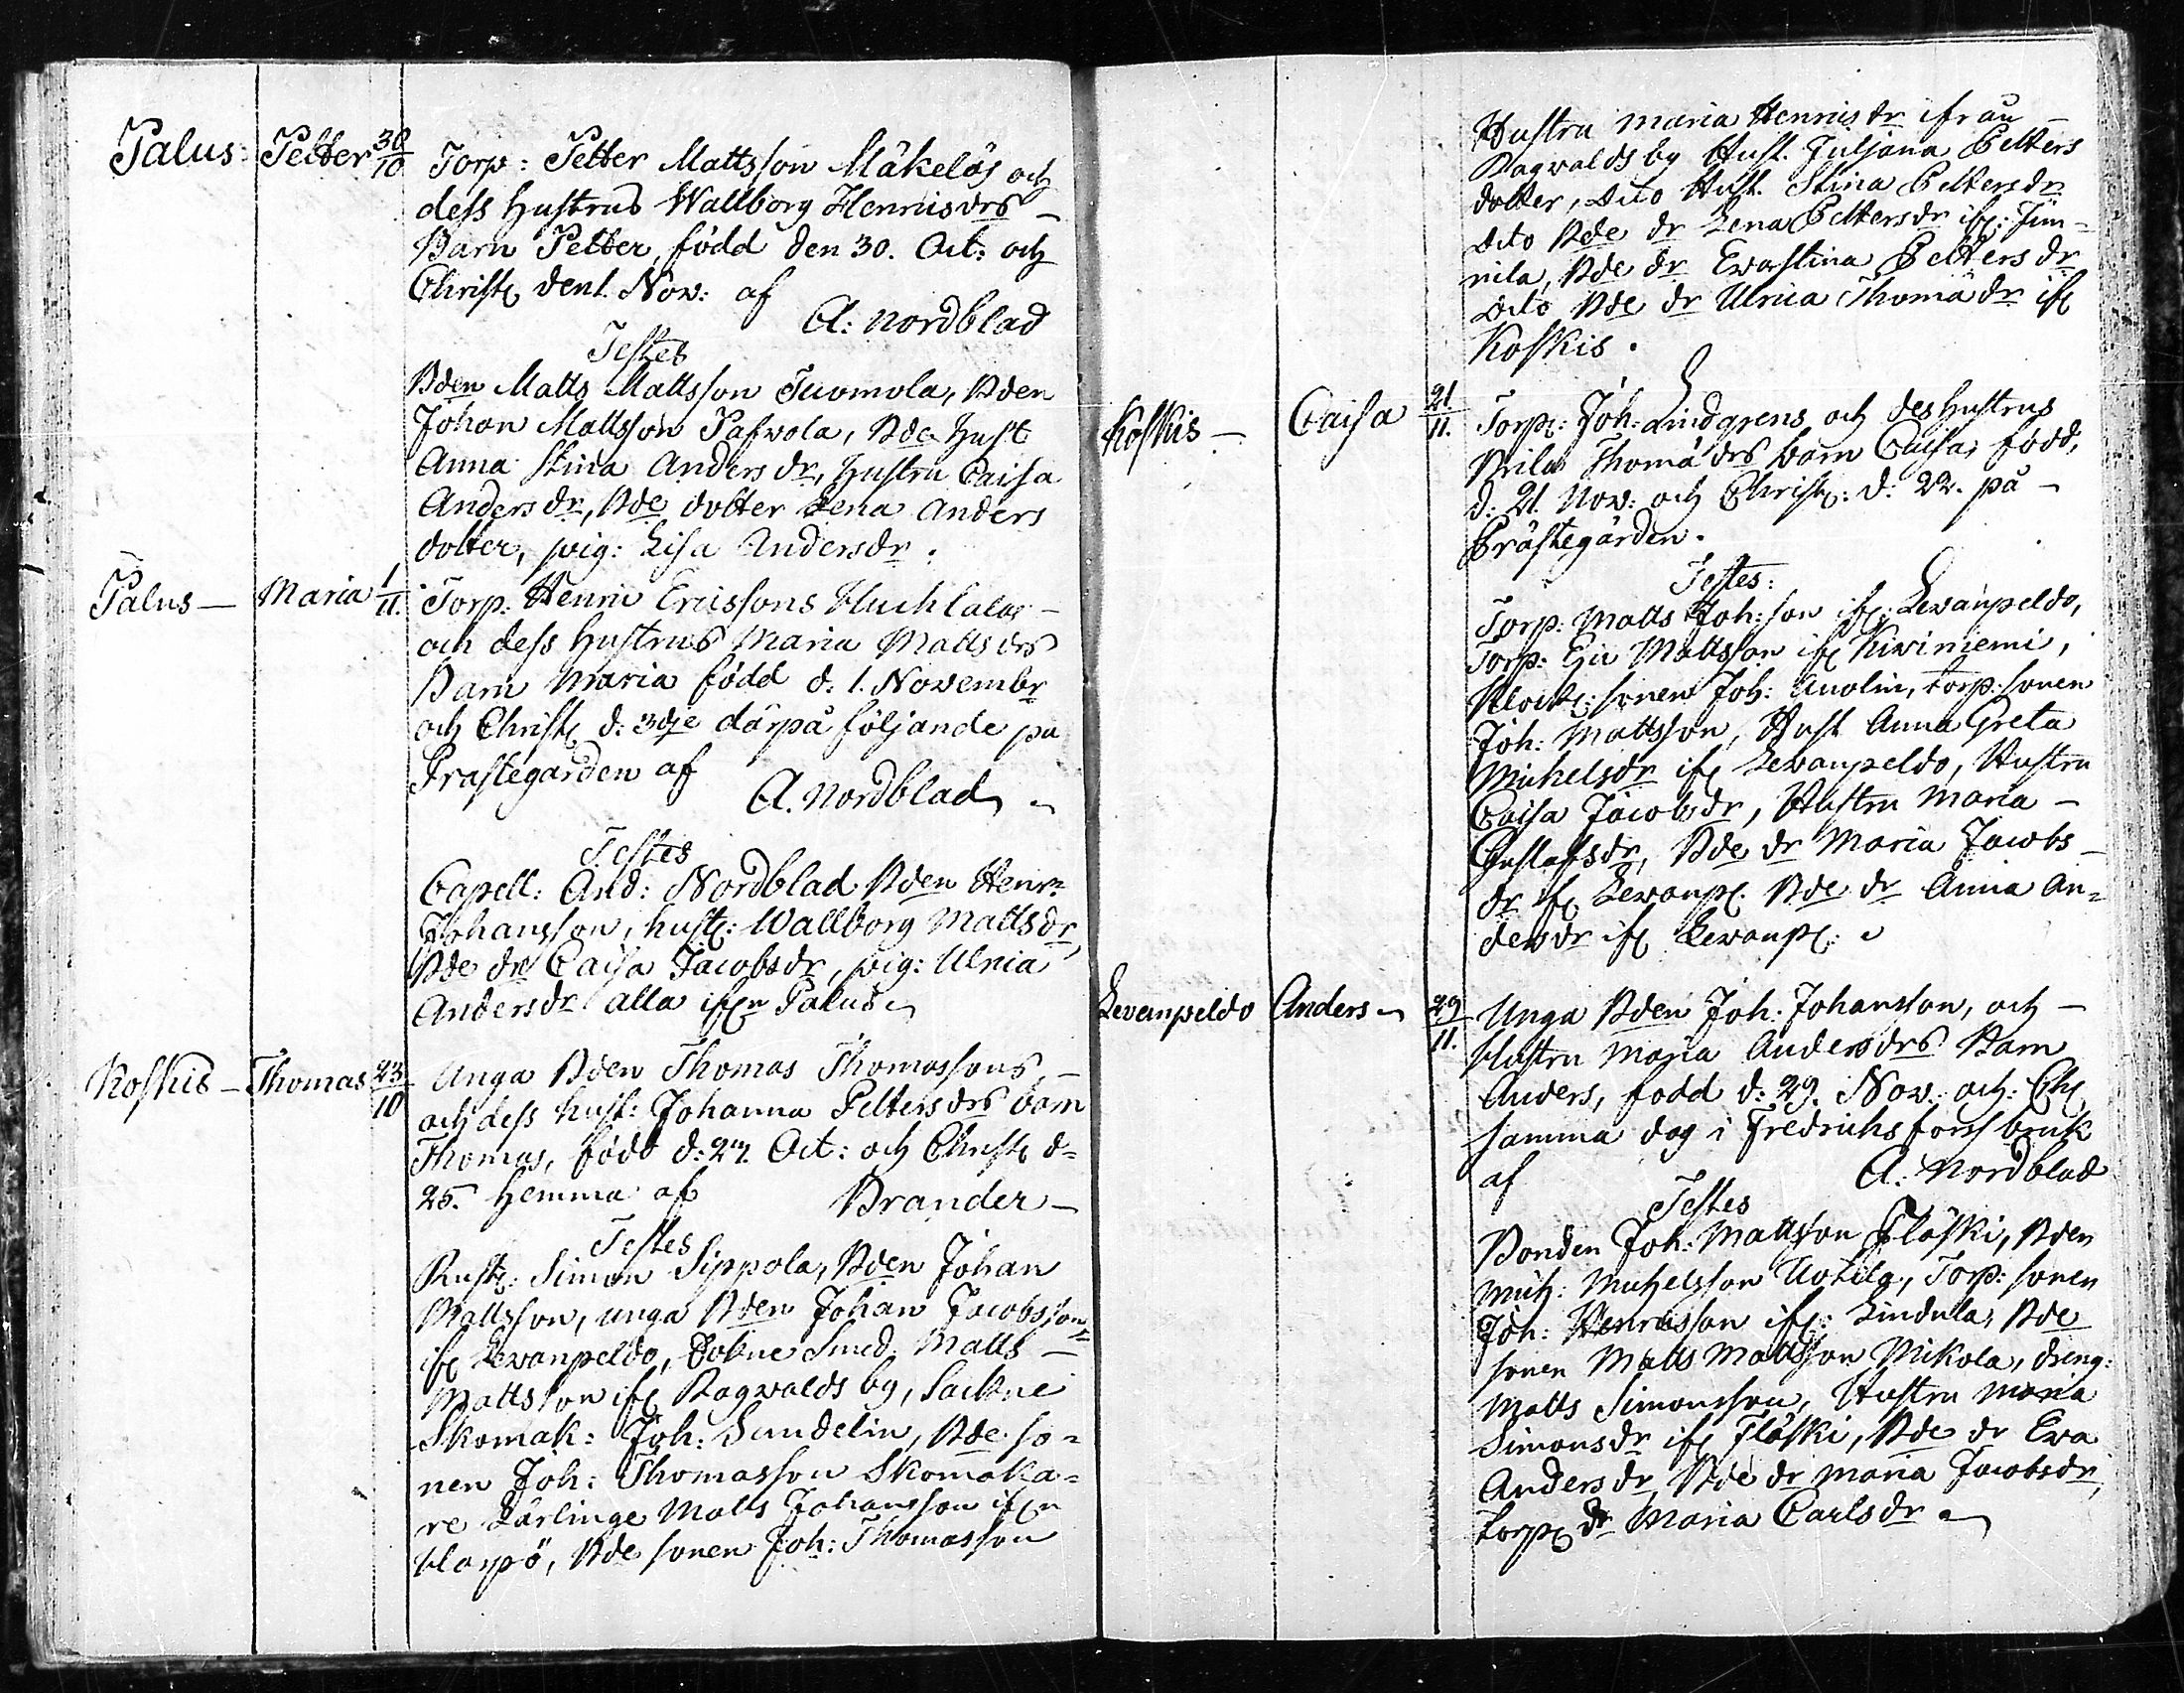 Palus: Petter 30/10 Torp: Petter Mattsson Mäkeläs och
dess hustrus Wallborg Henricsdrs –
Barn Petter, född den 30. Oct: och
Christ den 1. Nov: af
A: Nordblad
Testes
Bden Matts Mattsson Tuomola, Bden
Johan Mattsson Pafwola, Bde hust
Anna Stina Anders dr, hustru Caisa
Anders dr, Bde dotter Lena Anders
dotter, pig: Lisa Andersdr.
Palus – Maria 1/11. Torp: Henric Ericssons Huchtalas –
och dess hustrus Maria Matts drs
Barn Maria född d. 1. Novembr
och Christ d: 3dje därpå följande på
Prastegarden af
A. Nordblad
Testes
Capell: And: Nordblad Bden Henr:
Johansson, hust: Wallborg Mattsdr,
Bde dr Caisa Jacobsdr, pig: Ulrica
Andersdr alla ifrn Palus
Koskis – Thomas 23/10 Unga Bden Thomas Thomassons –
och dess hust: Johanna Pettersdrs barn
Thomas, född d: Oct: och Christ d=
25. hemma af Brander –
Testes
Rust: Simon Sippola, Bden Johan
Mattsson, unga Bden Johan Jacobsson
ifr Levanpeldo, Sokne Smed Matts –
Mattsson ifr Ragwalds by, Sockne
Skomak: Joh: Sundelin, Bde so=
nen Joh: Thomasson Skomaka=
re Lärlinge Matts Johansson ifrn
Harpö, Bde sonen Joh: Thomasson
Hustru Maria Henricsdr ifrån –
Ragwaldsby Hust. Juljana Petters
dotter, dito Hust. Stina Pettersdr
dito Bde dr Lena Pettersdr ifr: Jun=
nila, Bde dr Ewastina Petters dr
dito Bde dr Ulrica Thomä dr ifr
Koskis.
Koskis – Caisa 21/11. Torp: Joh: Lindgrens och des hustrus
Thomä drs barn Caisa, född,
d: 21. Nov: och Christ: d: 22. på –
Prästegården.
Testes:
Torp: Matts Joh:son ifr: Levanpeldo,
Torp: Eric Mattsson ifr Kiviniemi,
Klock: sonen Joh: torp: sonen
Joh: Mattsson, Hust Anna Greta
Michelsdr ifr Levanpeldo, Hustru
Caisa Jacobsdr, Hustru Maria –
Gustafsdr, Bde dr Maria Jacobs –
dr ifr Levanp: Bde dr Anna An=
dersdr ifr Levanp:
Levanpeldo Anders 29/11. Unga Bden Joh: Johansson, och –
Hustru Maria Andersdrs Barn
Anders, född d: 29. Nov. och: Chr
samma dag i Fredrichsforss bruk
af A: Nordblad
Testes
Bonden Joh: Mattsson Fläski, Bden
Mich: Michelsson Uotila, Torp: sonen
Joh: Henricsson ifr: Lindula, Bde
sonen Matts Mattsson Nikola, dreng:
Matts Simonsson, Hustru Maria
Simonsdr ifr Fläski, Bde dr Ewa
Andersdr, Bde dr Maria Jacobsdr,
Torp dr Maria Carlsdr